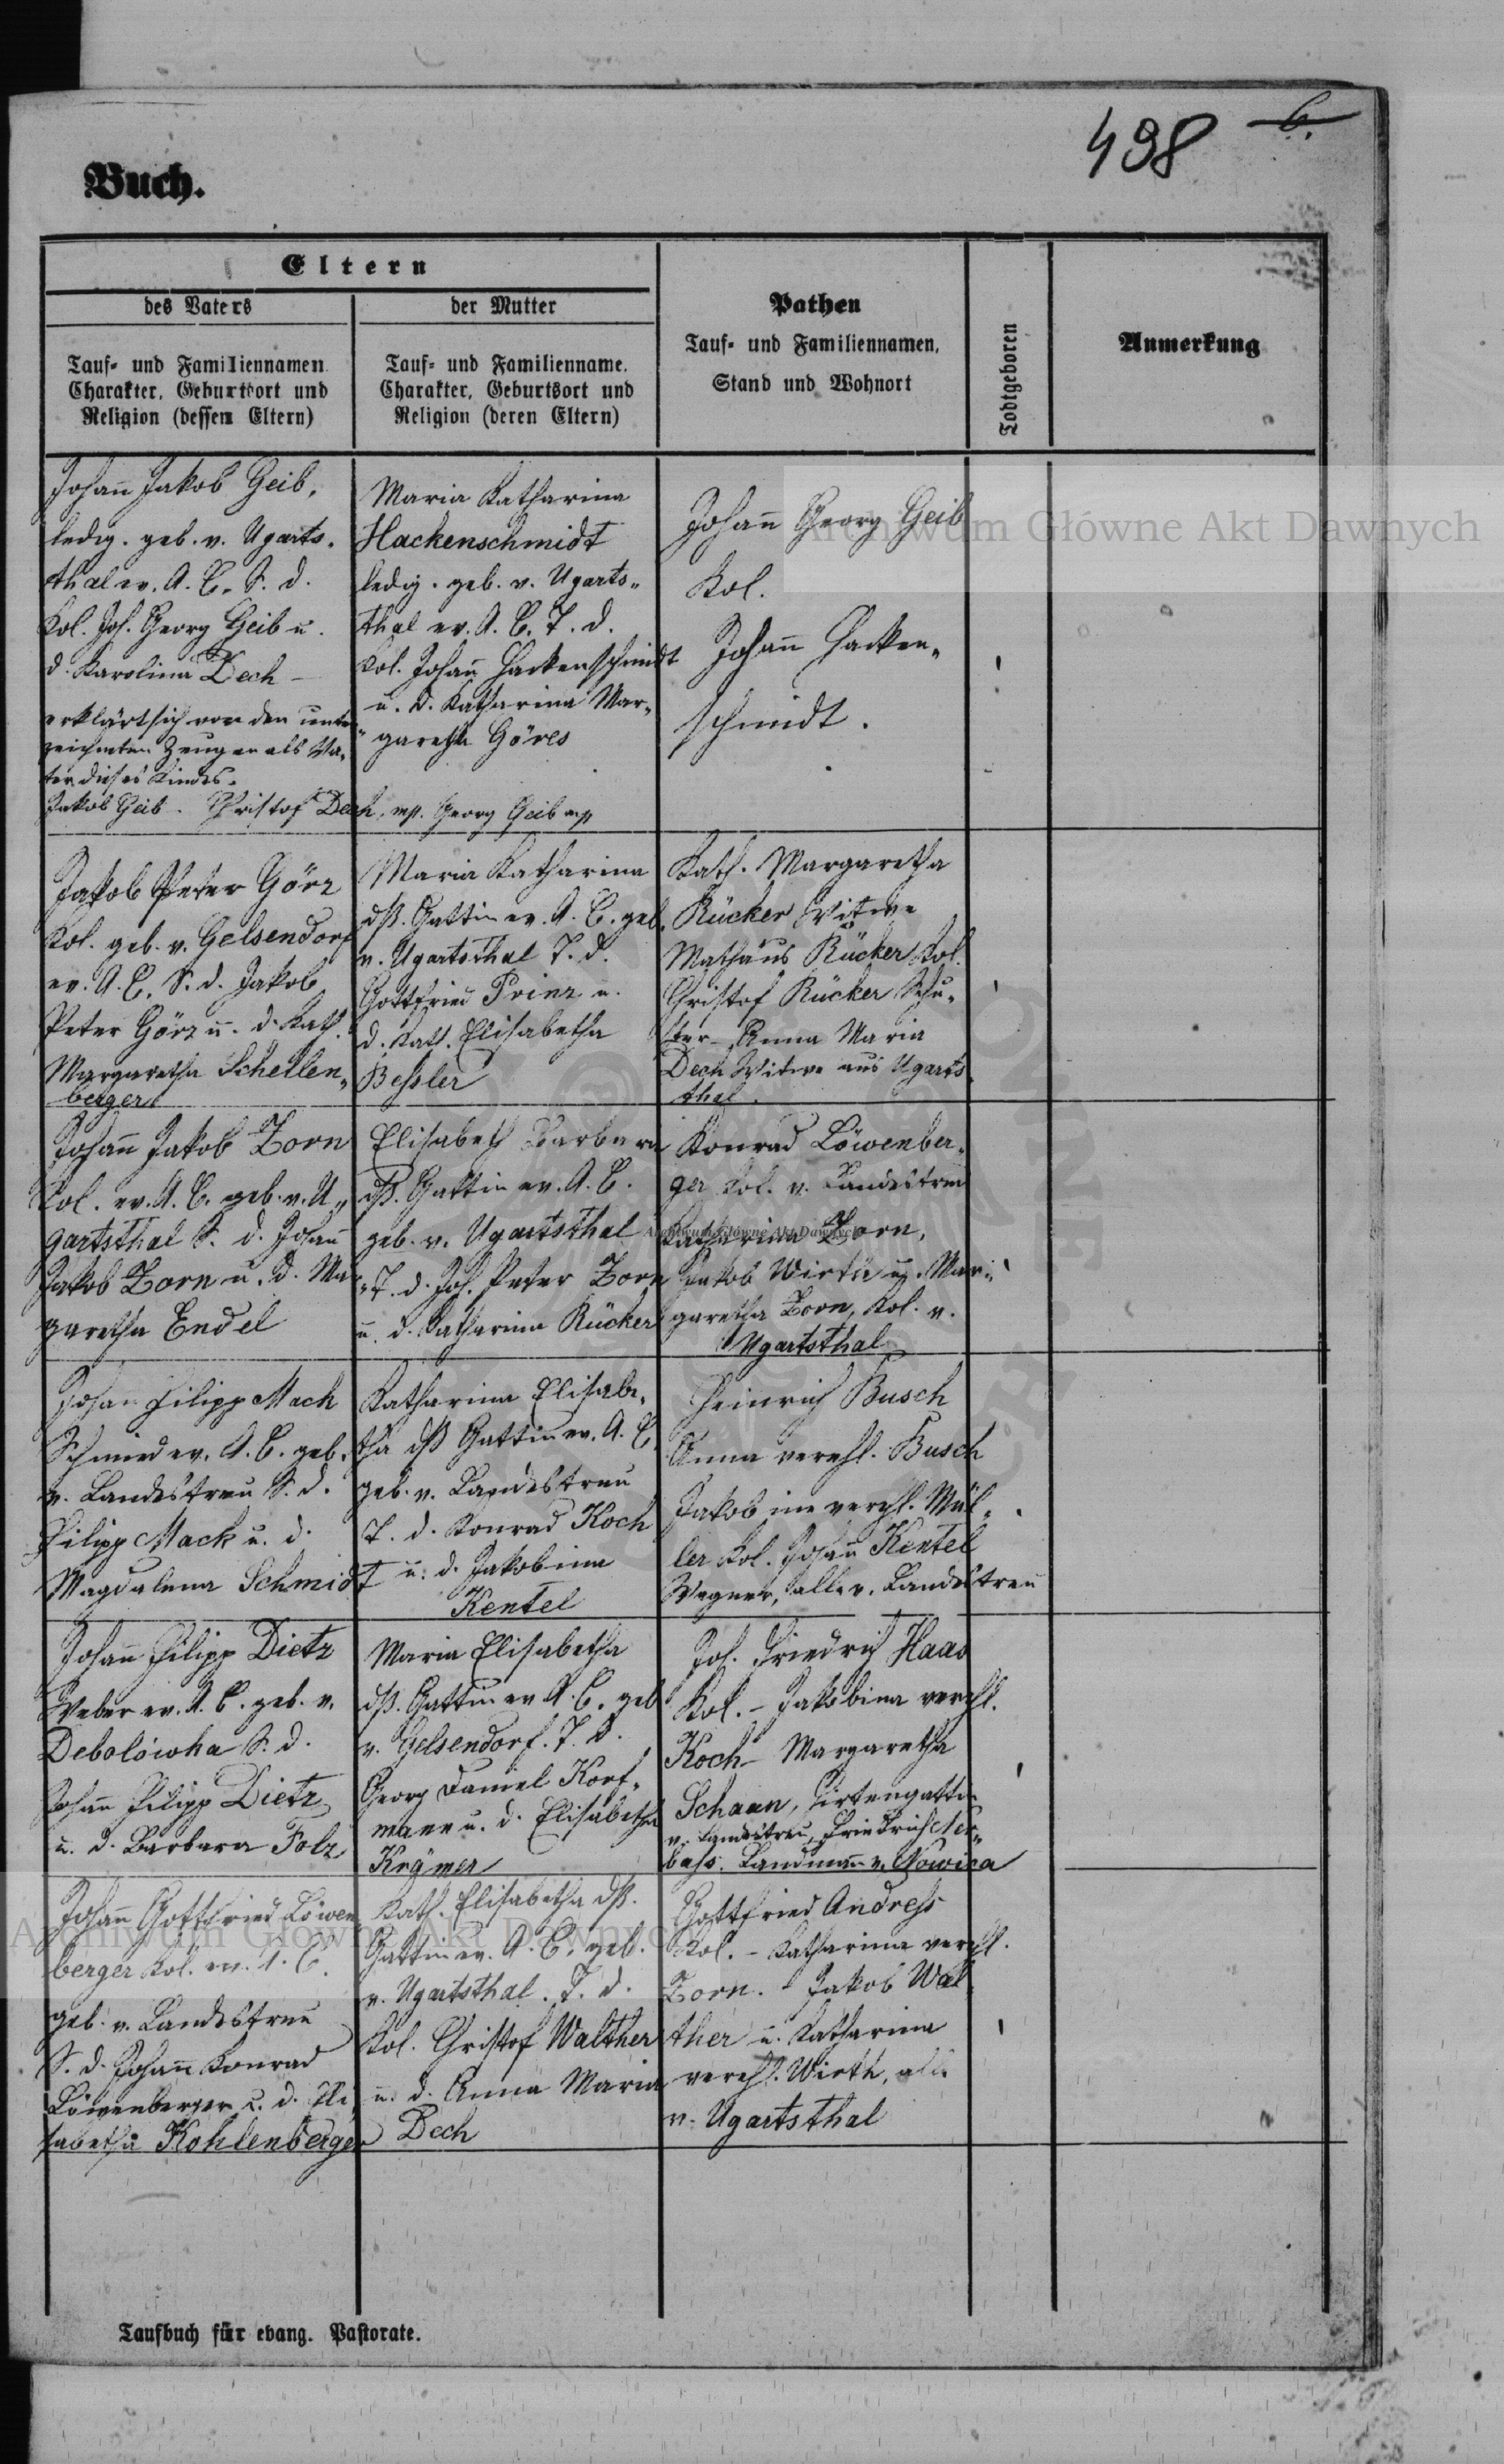 498 6.
Buch.
Eltern
des Vaters
der Mutter
Pathen
Todtgeboren
Anmerkung
Tauf- und Familiennamen
Charakter, Geburtsort und
Religion (dessen Eltern)
Tauf- und Familienname.
Charakter, Geburtsort und
Religion (deren Eltern)
Tauf- und Familiennamen,
Stand und Wohnort
Johann Jakob Geib,
ledig. geb. v. Ugarts-
thal ev. A. C. S. d.
Kol. Joh. Georg Geib u.
d. Karolina Dech –
erklärt sich vor den unter-
zeichneten Zeugen als Va-
ter dieses Kindes.
Jakob Geib. Christof Dech, mp. Georg Geib mp
Maria Katharina
Hackenschmidt
ledig. geb. v. Ugarts-
thal ev. A. C. T. d.
Kol. Johann Hackenschmidt
u. d. Katharina Mar-
garetha Göres
Johann Georg Geib
Kol.
Johann Hacken-
schmidt.
Jakob Peter Görz
Kol. geb. v. Gelsendorf
ev. A. C. S. d. Jakob
Peter Görz u. d. Kath.
Margaretha Schellen-
berger
Maria Katharina
dß. Gattin ev. A. C. geb.
v. Ugartsthal T. d.
Gottfried Prinz u.
d. Kath. Elisabetha
Bessler
Kath. Margaretha
Rücker Witwe
Mathäus Rücker Kol.
Christof Rücker Schu-
ster – Anna Maria
Dech Witwe aus Ugarts-
thal.
Johann Jakob Zorn
Kol. ev. A. C. geb. v. U-
gartsthal S. d. Johann
Jakob Zorn u. d. Mar-
garetha Endel
Elisabeth Barbara
dß. Gattin ev. A. C.
geb. v. Ugartsthal
T. d. Joh. Peter Zorn
u. d. Katharina Rücker
Konrad Löwenber-
ger Kol. v. Landestreu
Katharina Zorn,
Jakob Wirth u. Mar-
garetha Zorn, Kol. v.
Ugartsthal
Johan Filipp Mach
Schmied ev. A. C. geb.
v. Landestreu S. d.
Filipp Mack u. d.
Magdalena Schmidt
Katharina Elisabe-
tha dß Gattin ev. A. C.
geb. v. Landestreu
T. d. Konrad Koch
u. d. Jakobina
Kentel
Heinrich Busch
Anna verehl. Busch
Jakobine verehl. Mül-
ler Kol. Johann Kentel
Wagner, alle v. Landestreu
Johann Filipp Dietz
Weber ev. A. C. geb. v.
Debolowha S. d.
Johann Filipp Dietz
u. d. Barbara Folz
Maria Elisabetha
dß. Gattin ev A. C. geb
v. Gelsendorf. T. d.
Georg Daniel Korf-
mann u. d. Elisabetha
Krämer
Joh. Friedrich Haas
Kol. – Jakobina verehl.
Koch – Margaretha
Schaan, Hirtengattin
v. Landestreu, Friedrich Ner-
bass. Landmann v. Nowica
Johann Gottfried Löwen-
berger Kol. ev. A. C.
geb. v. Landestreu
S. d. Johann Konrad
Löwenberger u. d. Eli-
sabetha Kohlenberger
Kath. Elisabetha dß.
Gattin ev. A. C. geb.
v. Ugartsthal. T. d.
Kol. Christof Walther
u. d. Anna Maria
Dech
Gottfried Andress
Kol. – Katharina verehl.
Zorn. – Jakob Wal-
ther u. Katharina
verehl. Wirth, alle
v. Ugartsthal
Taufbuch für evang. Pastorate.
Archiwum Główne Akt Dawnych
Archiwum Główne Akt Dawnych
Archiwum Główne Akt Dawnych